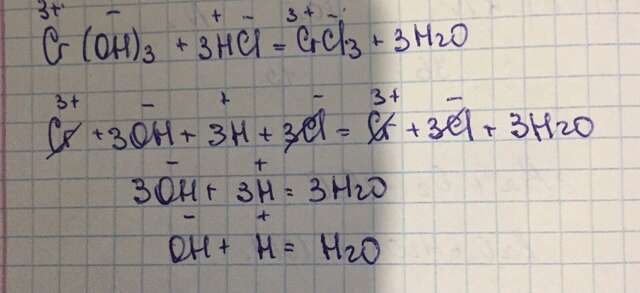 Cr³⁺(OH)⁻₃ + 3H⁺Cl⁻ = Cr³⁺Cl⁻₃ + 3H₂O
Cr³⁺ + 3OH⁻ + 3H⁺ + 3Cl⁻ = Cr³⁺ + 3Cl⁻ + 3H₂O
3OH⁻ + 3H⁺ = 3H₂O
OH⁻ + H⁺ = H₂O